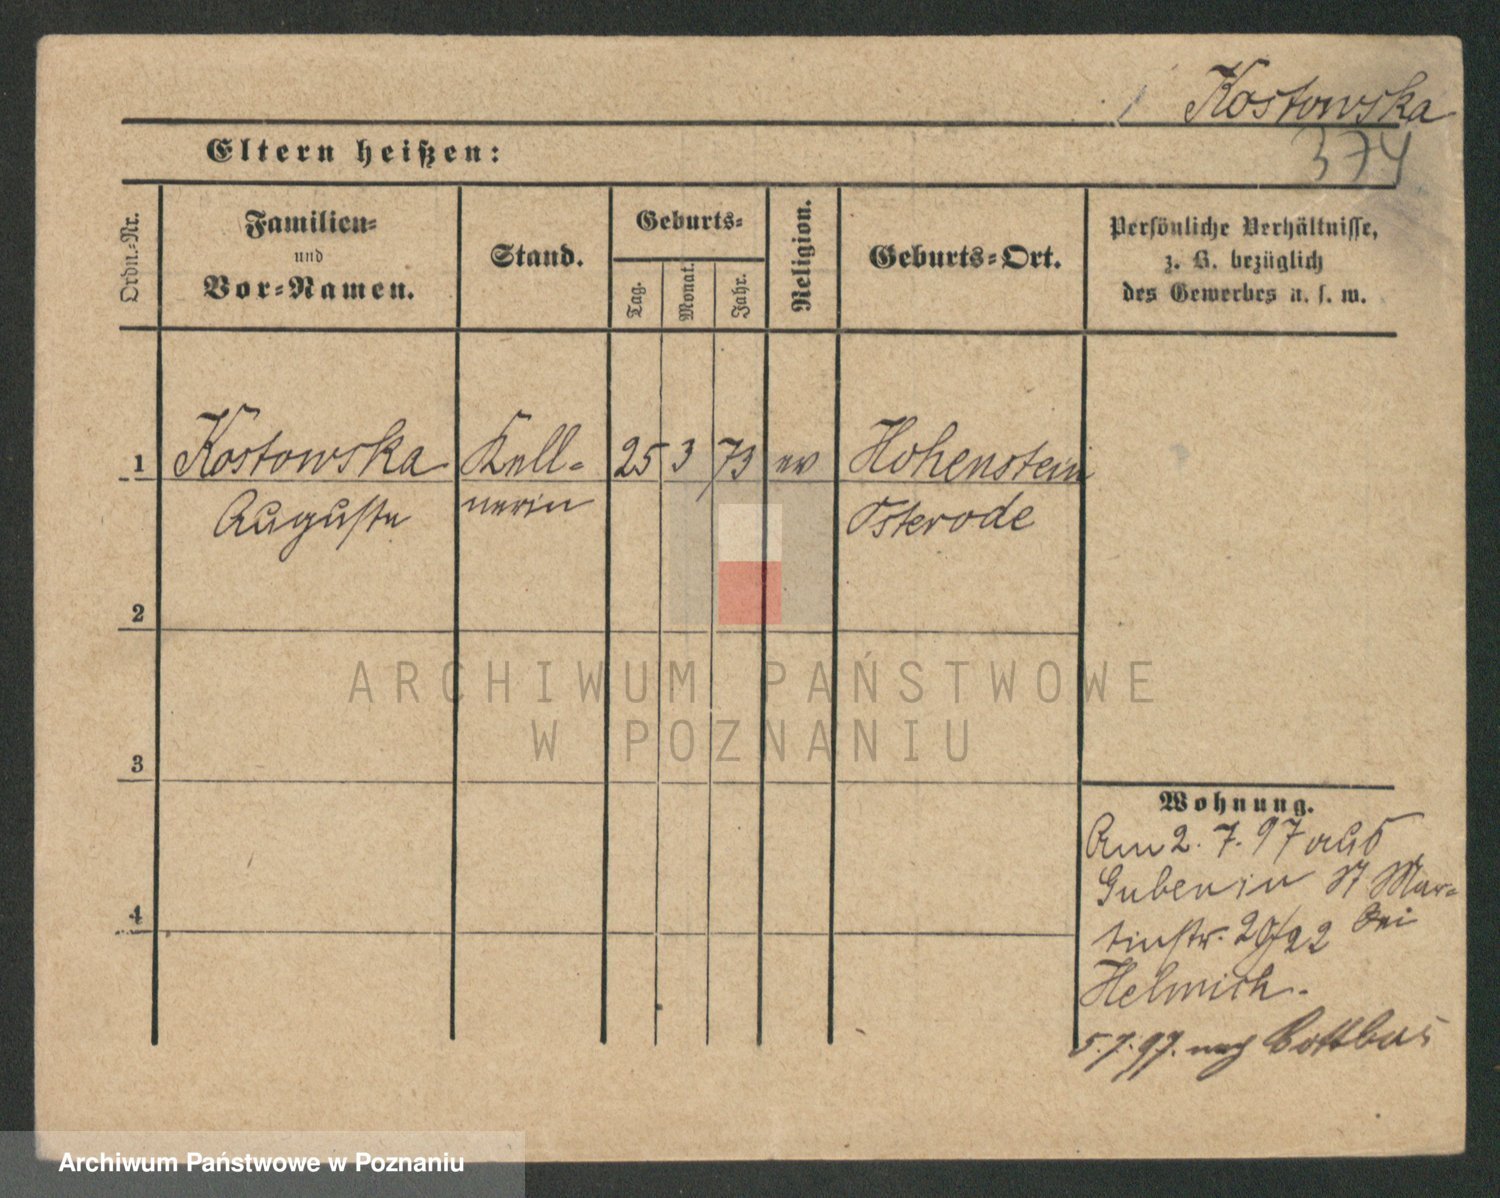 Kostowska
374
Eltern heißen:
Ordn.-Nr.
Familien-
und
Vor-Namen.
Stand.
Geburts-
Tag.
Monat.
Jahr.
Religion.
Geburts-Ort.
Persönliche Verhältnisse,
z. B. bezüglich
des Gewerbes u. s. w.
1 Kostowska Kell- 25 3 73 ev Hohenstein
Auguste nerin Osterode
2
3
4
Wohnung.
Am 2. 7. 97 aus
Guben in St Mar-
tinstr. 20/22 bei
Helmich.
5.7.97. nach Cottbus
ARCHIWUM PAŃSTWOWE
W POZNANIU
Archiwum Państwowe w Poznaniu